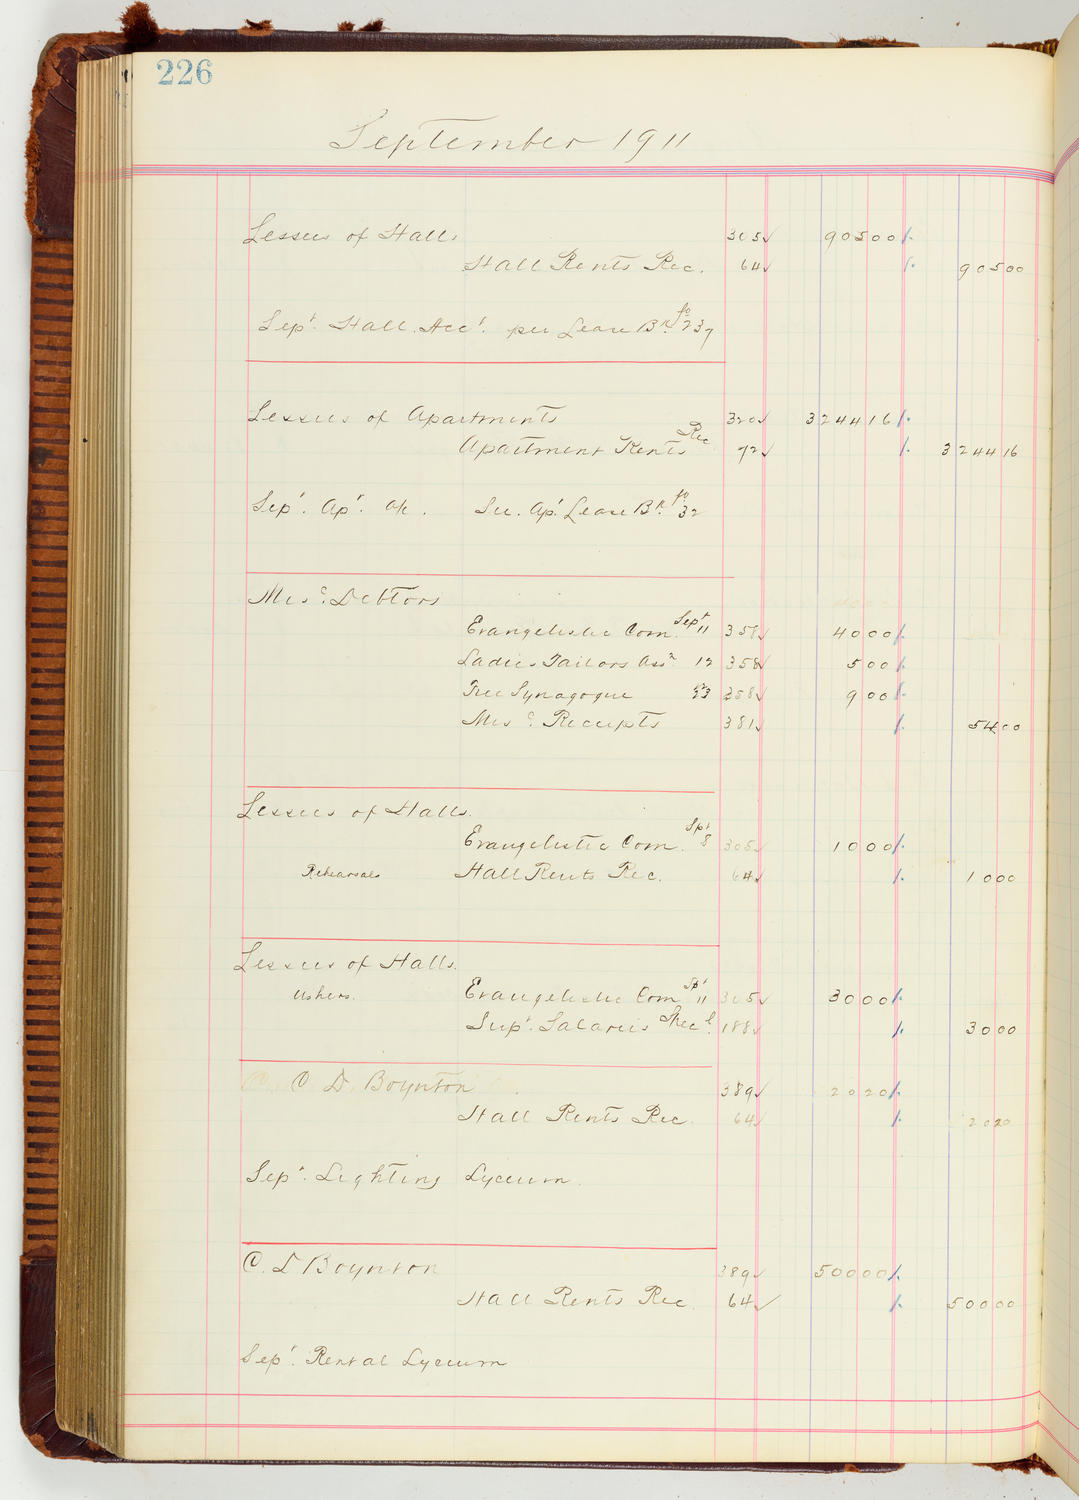 226
September 1911
Lessees of Halls 305✓ 90500
Hall Rents Rec. 64✓ 90500
Sept. Hall Acct. per Lease Bk. fo 237
Lessees of Apartments 320✓ 324416
Apartment Rents Rec 72✓ 324416
Sept. Apt. a/c. See. Apt. Lease Bk. fo 32
Misc. Debtors
Evangelistic Com. Sept 11 358✓ 4000
Ladies Tailors Assn. 12 358✓ 500
Free Synagogue 23 358✓ 900
Misc. Receipts 381✓ 5400
Lessees of Halls.
Evangelistic Com. Spt 8 305✓ 1000
Rehearsals Hall Rents Rec. 64✓ 1000
Lessees of Halls.
Ushers. Evangelistic Com Spt 11 305✓ 3000
Supt. Salaries Specl. 188✓ 3000
C D. Boynton 389✓ 2020
Hall Rents Rec. 64✓ 2020
Sept. Lighting Lyceum.
C. D Boynton 389✓ 50000
Hall Rents Rec. 64✓ 50000
Sept. Rental Lyceum